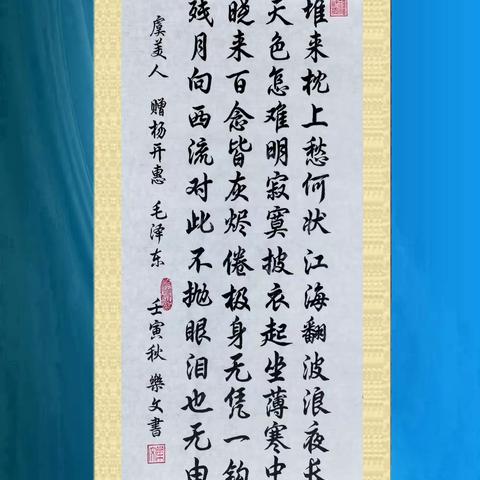 堆来枕上愁何状江海翻波浪夜长
天色怎难明寂寞披衣起坐薄寒中
晓来百念皆灰烬倦极身无凭一钩
残月向西流对此不抛眼泪也无由
虞美人 赠杨开惠 毛泽东 壬寅秋 樂文書